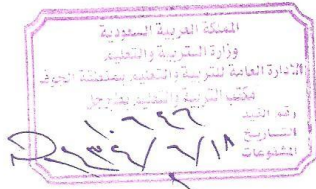 المملكة العربية السعودية
وزارة التربية والتعليم
الإدارة العامة للتربية والتعليم بمنطقة الجوف
مكتب التربية والتعليم بطبرجل
رقم القيد
التاريخ ١٨/٦/
المشفوعات